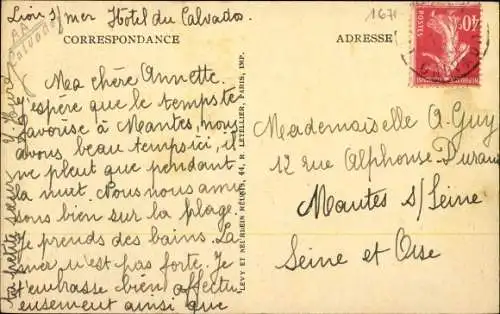 Lion s/mer Hotel du Calvados.
CORRESPONDANCE
Ma chère Annette.
J'espère que le temps te
favorise à Mantes, nous
avons beau temps ici, il
ne pleut que pendant
la nuit. Nous nous amu
sons bien sur la plage.
Je prends des bains. La
mer n'est pas forte. Je
t'embrasse bien affectu
eusement ainsi que
ta petite sœur
LEVY ET NEURDEIN RÉUNIS, 44, R LETELLIER, PARIS, IMP.
1671
ADRESSE
POSTES
40c
Mademoiselle A. Guy
12 rue Alphonse-Durand
Mantes s/Seine
Seine et Oise